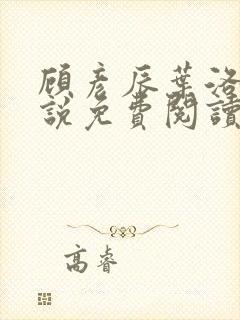 顧彥辰葉洛
說免費閱讀
高睿